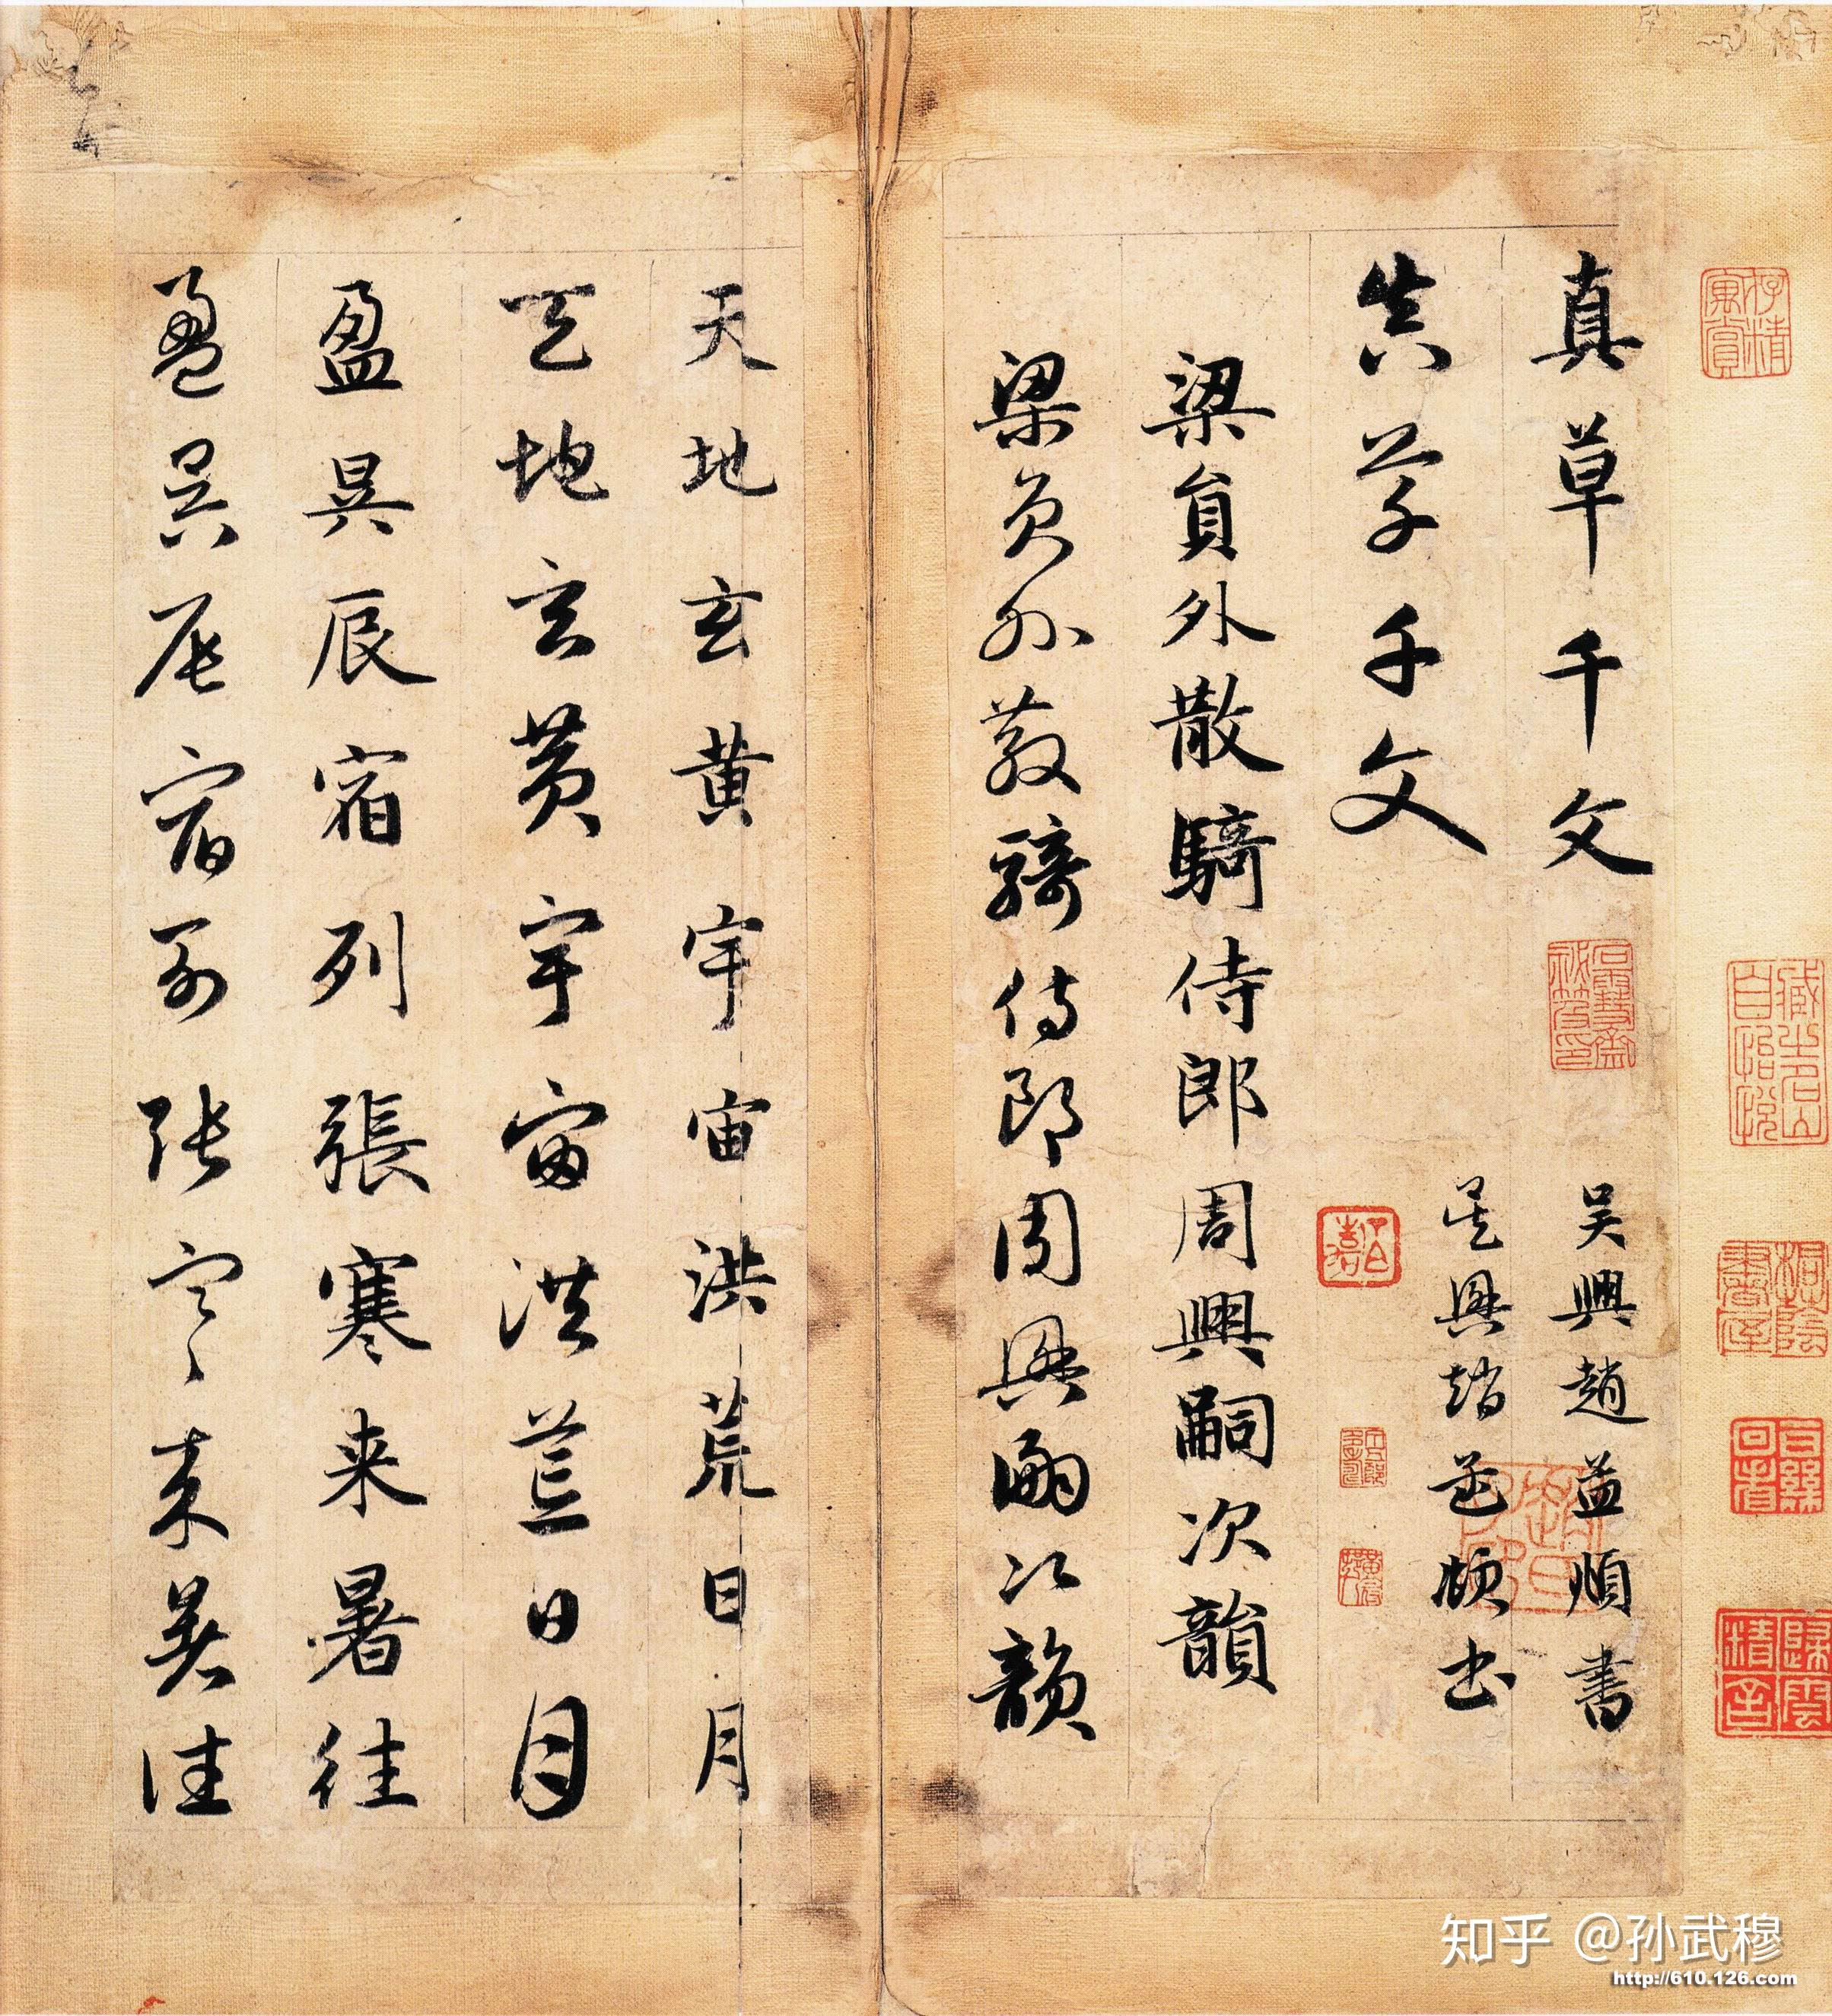 真草千文
吳興趙孟頫書
真草千文
吳興趙孟頫書
梁員外散騎侍郎周興嗣次韻
梁員外散騎侍郎周興嗣次韻
天地玄黃宇宙洪荒日月
天地玄黃宇宙洪荒日月
盈昃辰宿列張寒来暑往
盈昃辰宿列張寒来暑往
知乎 @孙武穆
http://610.126.com